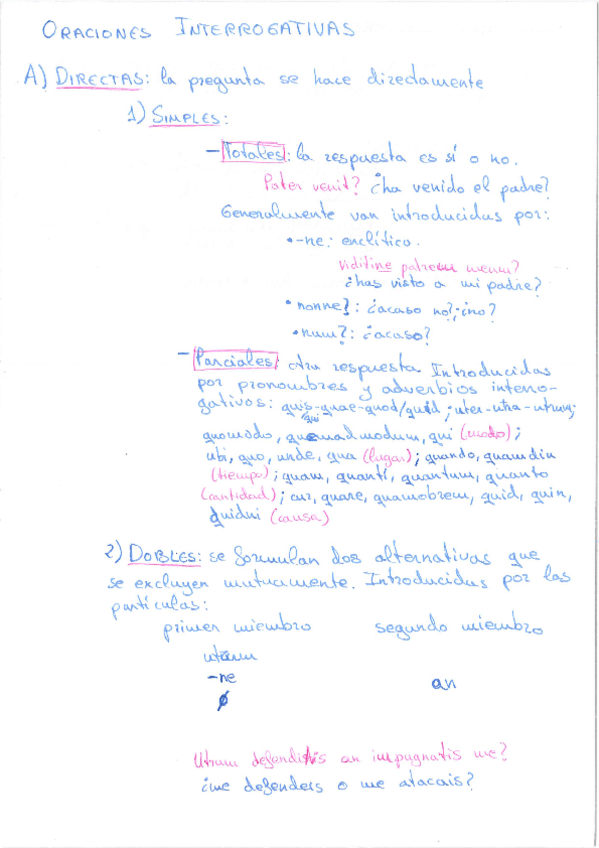 ORACIONES INTERROGATIVAS
A) DIRECTAS: la pregunta se hace directamente
1) SIMPLES:
- Totales: la respuesta es sí o no.
Pater venit? ¿ha venido el padre?
Generalmente van introducidas por:
• -ne: enclítico.
viditine patrem meum?
¿has visto a mi padre?
• nonne?: ¿acaso no?; ¿no?
• num?: ¿acaso?
- Parciales: otra respuesta Introducidas
por pronombres y adverbios interro-
gativos: quis-quae-quod/quid; uter-utra-utrum;
qui
quomodo, quemadmodum, qui (modo);
ubi, quo, unde, qua (lugar); quando, quamdiu
(tiempo); quam, quanti, quantum, quanto
(cantidad); cur, quare, quamobrem, quid, quin,
quidni (causa)
2) DOBLES: se formulan dos alternativas que
se excluyen mutuamente. Introducidas por las
partículas:
primer miembro segundo miembro
utrum
-ne an
ø
Utrum defenditis an impugnatis me?
¿me defendéis o me atacáis?